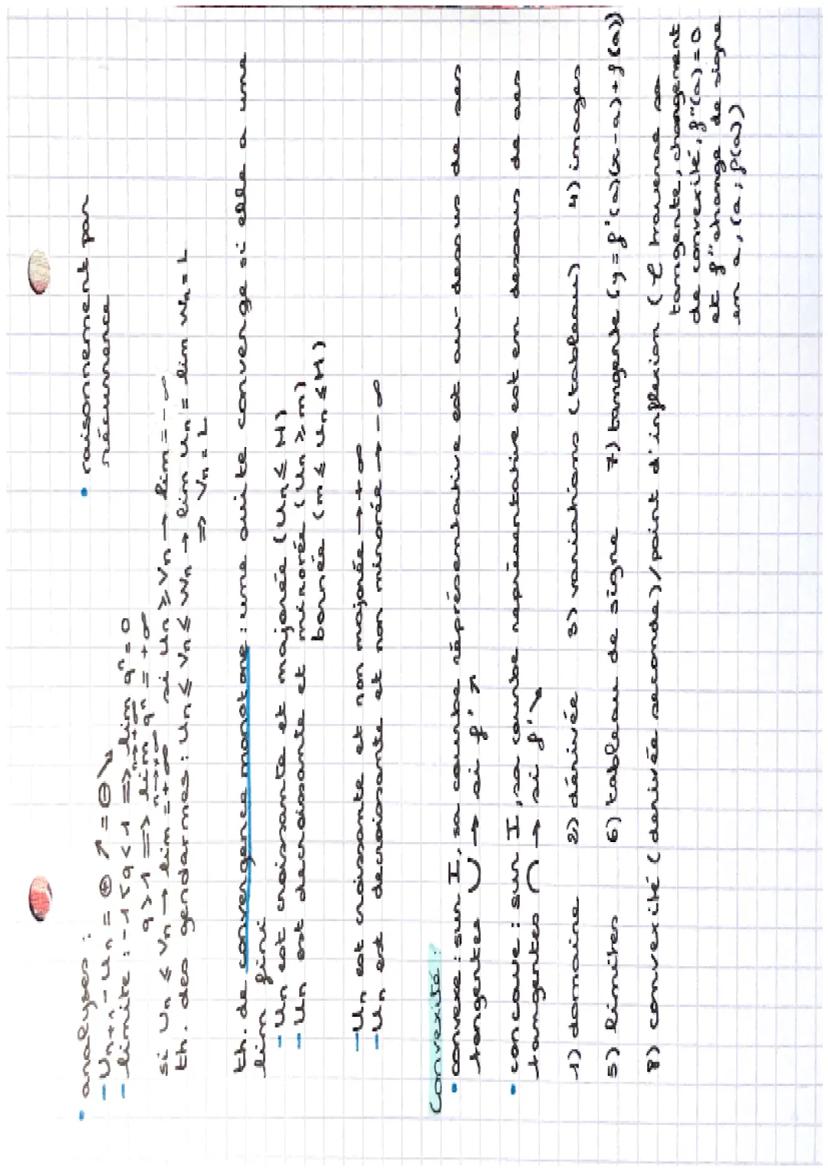 • analyses :
• raisonnement par
récurrence
- Un+1 - Un = ⊕ ↗ = ⊖ ↘
- limite : -1 < q < 1 => lim qⁿ = 0
n→+∞
q > 1 => lim qⁿ = +∞
n→+∞
si Un ≤ Vn → lim = +∞ si Un ≥ Vn → lim = -∞
th. des gendarmes : Un ≤ Vn ≤ Wn → lim Un = lim Wn = L
=> Vn = L
th. de convergence monotone : une suite converge si elle a une
lim fini
- Un est croissante et majorée (Un ≤ M)
- Un est decroissante et minorée (Un ≥ m)
bornée (m ≤ Un ≤ M)
- Un est croissante et non majorée → +∞
- Un est decroissante et non minorée → -∞
Convexité :
• convexe : sur I, sa courbe réprésentative est au-dessus de ses
tangentes ∪ → si f' ↗
• concave : sur I, sa courbe représentative est en dessous de ses
tangentes ∩ → si f' ↘
1) domaine 2) dérivée 3) variations (tableau) 4) images
5) limites 6) tableau de signe 7) tangente (y = f'(a)(x-a) + f(a))
8) convexité (derivée seconde) / point d'inflexion (C traverse sa
tangente, changement
de convexité, f"(a) = 0
et f" change de signe
en a, (a; f(a))